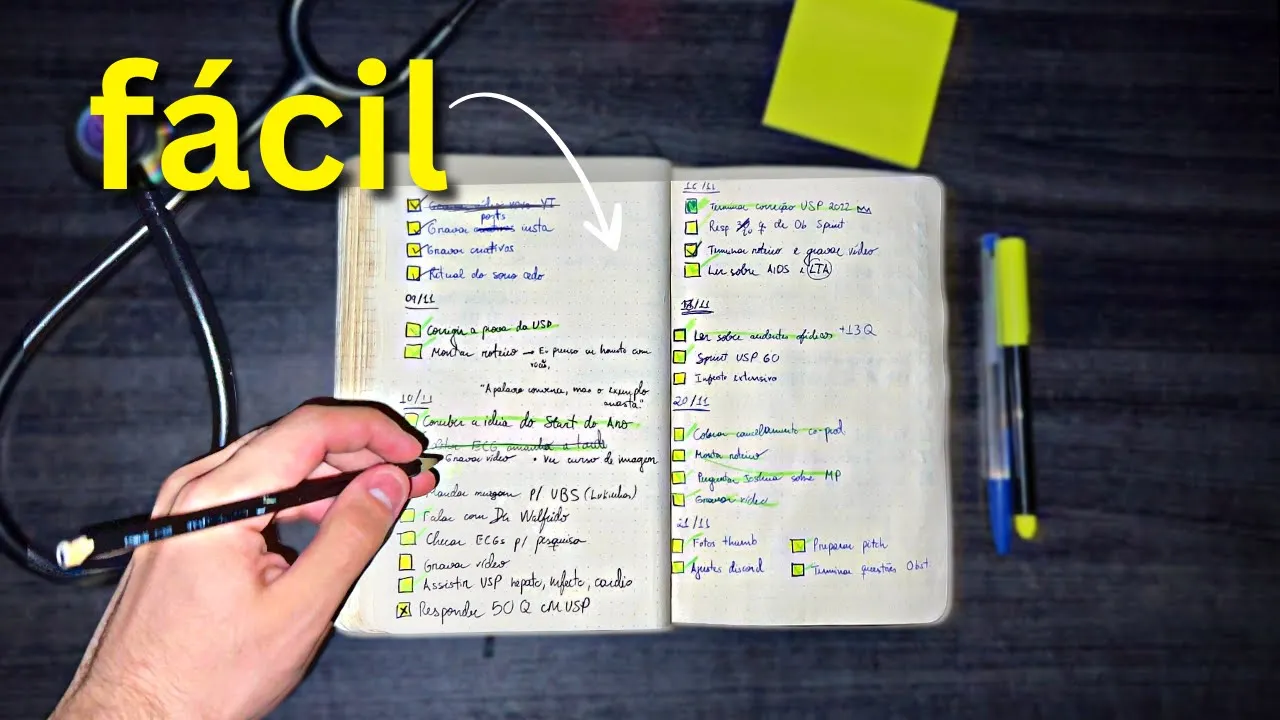 fácil
posts
Gravar insta
Gravar criativos
Ritual do sono cedo
09/11
Corrigir a prova da USP
Montar roteiro → Eu preciso ser honesto com
vocês,
"A palavra convence, mas o exemplo
arrasta"
10/11
Conceber a ideia do Start do Ano
ECG amanhã a tarde
Gravar vídeo • Ver curso de imagem
Mandar msgm p/ UBS
Falar com Dr Walfrido
Checar ECGs p/ pesquisa
Gravar vídeo
Assistir USP hepato, infecto, cardio
Responder 50 Q CM USP
16/11
Terminar correção USP 2022
Resp de Ob Sprint
Terminar roteiro e gravar vídeo
Ler sobre AIDS e LTA
/11
Ler sobre acidentes ofídicos +13Q
Sprint USP GO
Infecto extensivo
20/11
Colocar cancelamento co-prod
Montar roteiro
Perguntar Joshua sobre MP
Gravar vídeo
21/11
Fotos thumb
Preparar pitch
Ajustes discord
Terminar questões Obst